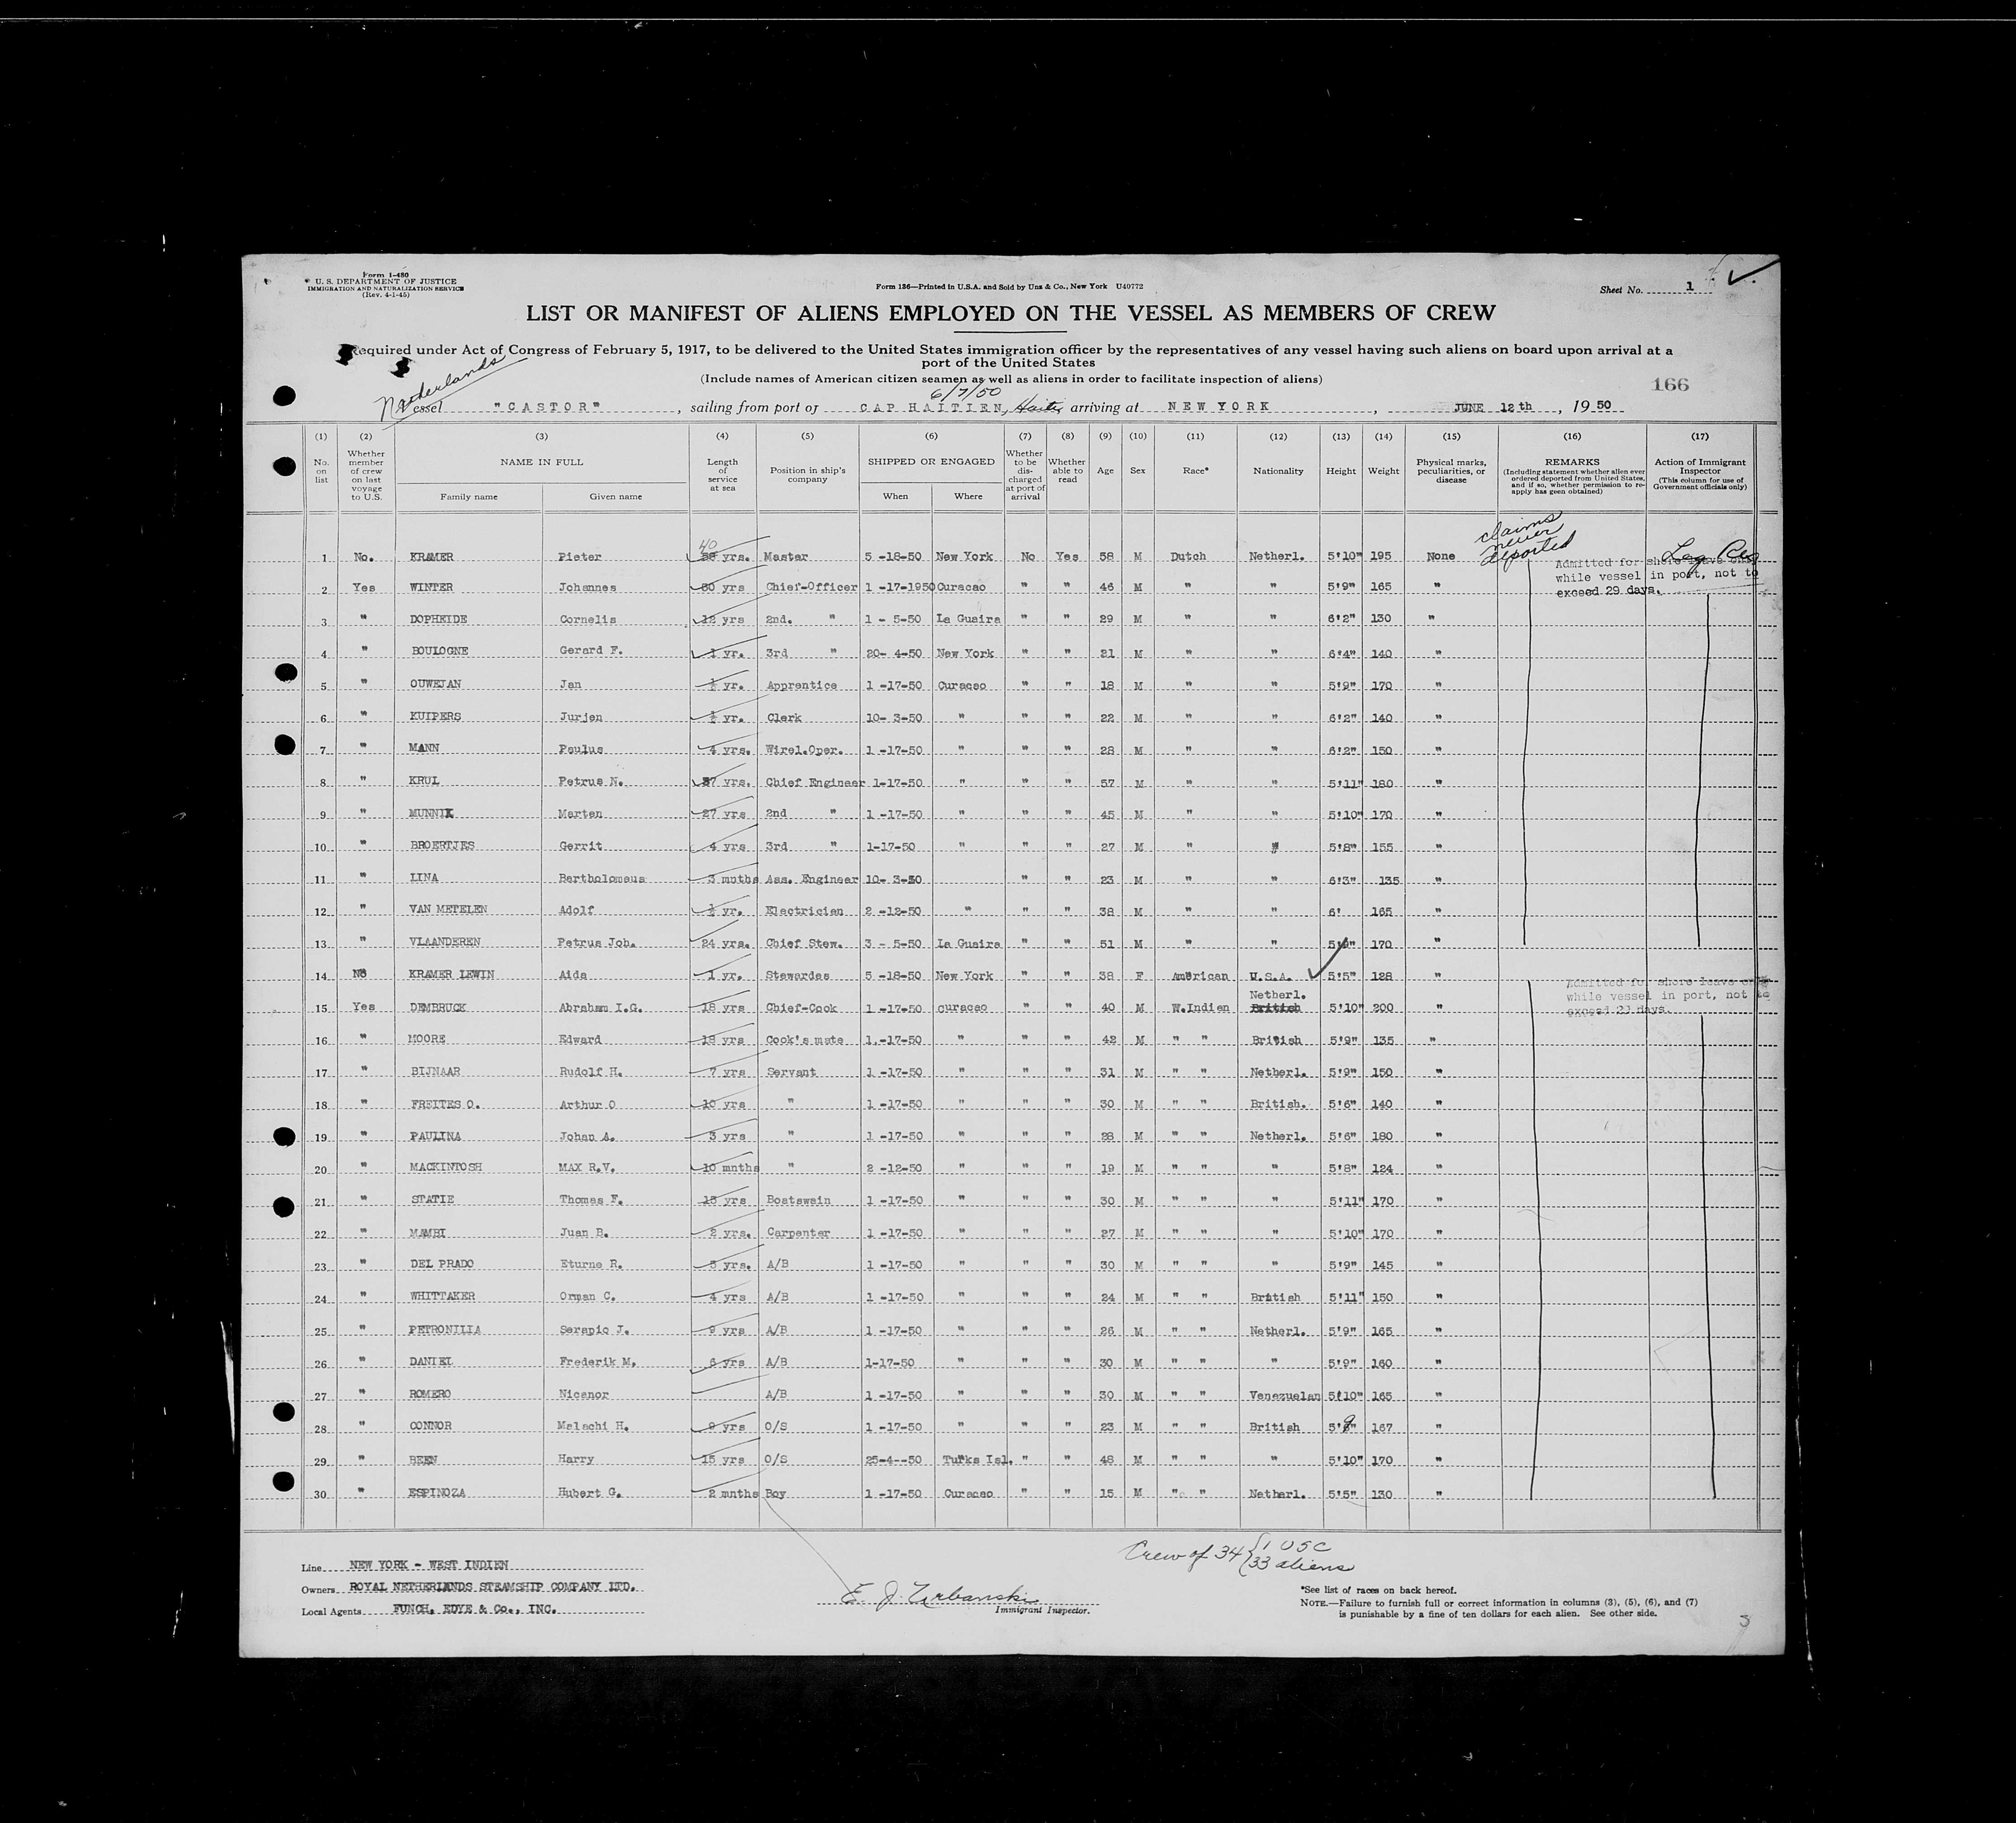 Form I-480
U. S. DEPARTMENT OF JUSTICE
IMMIGRATION AND NATURALIZATION SERVICE
(Rev. 4-1-45)
Form 136—Printed in U.S.A. and Sold by Unz & Co., New York U40772
Sheet No. 1
LIST OR MANIFEST OF ALIENS EMPLOYED ON THE VESSEL AS MEMBERS OF CREW
Required under Act of Congress of February 5, 1917, to be delivered to the United States immigration officer by the representatives of any vessel having such aliens on board upon arrival at a
port of the United States
(Include names of American citizen seamen as well as aliens in order to facilitate inspection of aliens)
166
Nederlands
6/7/50
Vessel "CASTOR", sailing from port of CAP HAITIEN, Haiti arriving at NEW YORK, JUNE 12th, 1950
(1) (2) (3) (4) (5) (6) (7) (8) (9) (10) (11) (12) (13) (14) (15) (16) (17)
No. on list
Whether member of crew on last voyage to U.S.
NAME IN FULL
Family name Given name
Length of service at sea
Position in ship's company
SHIPPED OR ENGAGED
When Where
Whether to be discharged at port of arrival
Whether able to read
Age
Sex
Race*
Nationality
Height
Weight
Physical marks, peculiarities, or disease
REMARKS
(Including statement whether alien ever ordered deported from United States, and if so, whether permission to reapply has been obtained)
Action of Immigrant Inspector
(This column for use of Government officials only)
claims never deported
Admitted for shore leave only
while vessel in port, not to
exceed 29 days.
40
1 No. KRAMER Pieter yrs. Master 5 -18-50 New York No Yes 58 M Dutch Netherl. 5'10" 195 None
2 Yes WINTER Johannes 30 yrs Chief-Officer 1 -17-1950 Curacao " " 46 M " " 5'9" 165 "
3 " DOPHEIDE Cornelis 12 yrs 2nd. " 1 - 5-50 La Guaira " " 29 M " " 6'2" 130 "
4 " BOULOGNE Gerard F. 1 yr. 3rd " 20- 4-50 New York " " 21 M " " 6'4" 140 "
5 " OUWEJAN Jan ½ yr. Apprentice 1 -17-50 Curacao " " 18 M " " 5'9" 170 "
6 " KUIPERS Jurjen ½ yr. Clerk 10- 3-50 " " " 22 M " " 6'2" 140 "
7 " MANN Paulus 4 yrs. Wirel.Oper. 1 -17-50 " " " 28 M " " 6'2" 150 "
8 " KRUL Petrus N. 37 yrs. Chief Engineer 1-17-50 " " " 57 M " " 5'11" 180 "
9 " MUNNIK Marten 27 yrs 2nd " 1 -17-50 " " " 45 M " " 5'10" 170 "
10 " BROERTJES Gerrit 4 yrs 3rd " 1-17-50 " " " 27 M " " 5'8" 155 "
11 " LINA Bertholomeus 3 mnths Ass. Engineer 10- 3-50 " " 23 M " " 6'3" 135 "
12 " VAN METELEN Adolf ½ yr. Electrician 2 -12-50 " " " 38 M " " 6' 165 "
13 " VLAANDEREN Petrus Joh. 24 yrs. Chief Stew. 3 - 5-50 La Guaira " " 51 M " " 5'9" 170 "
14 No KRAMER LEWIN Aida 1 yr. Stewardes 5 -18-50 New York " " 38 F American U.S.A. 5'5" 128 "
Admitted for shore leave only
while vessel in port, not to
exceed 29 days.
15 Yes DEMBRUCK Abraham I.G. 18 yrs Chief-Cook 1 -17-50 curacao " " 40 M W.Indien Netherl. British 5'10" 200 "
16 " MOORE Edward 18 yrs Cook's mate 1.-17-50 " " " 42 M " " British 5'9" 135 "
17 " BIJNAAR Rudolf H. 7 yrs Servant 1 -17-50 " " " 31 M " " Netherl. 5'9" 150 "
18 " FREITES O. Arthur O 10 yrs " 1 -17-50 " " " 30 M " " British. 5'6" 140 "
19 " PAULINA Johan A. 3 yrs " 1 -17-50 " " " 28 M " " Netherl. 5'6" 180 "
20 " MACKINTOSH MAX R.V. 10 mnths " 2 -12-50 " " " 19 M " " " 5'8" 124 "
21 " STATIE Thomas F. 15 yrs Boatswain 1 -17-50 " " " 30 M " " " 5'11" 170 "
22 " MAMBI Juan B. 2 yrs. Carpenter 1 -17-50 " " " 27 M " " " 5'10" 170 "
23 " DEL PRADO Eturne R. 5 yrs. A/B 1 -17-50 " " " 30 M " " " 5'9" 145 "
24 " WHITTAKER Orman C. 4 yrs A/B 1 -17-50 " " " 24 M " " British 5'11" 150 "
25 " PETRONILIA Serapio J. 9 yrs A/B 1 -17-50 " " " 26 M " " Netherl. 5'9" 165 "
26 " DANIEL Frederik M. 6 yrs A/B 1-17-50 " " " 30 M " " " 5'9" 160 "
27 " ROMERO Nicanor A/B 1 -17-50 " " " 30 M " " Venezuelan 5'10" 165 "
28 " CONNOR Malachi H. 9 yrs O/S 1 -17-50 " " " 23 M " " British 5'9" 167 "
29 " BEEN Harry 15 yrs O/S 25-4--50 Turks Isl. " " 48 M " " " 5'10" 170 "
30 " ESPINOZA Hubert G. 2 mnths Boy 1 -17-50 Curacao " " 15 M " " Netherl. 5'5" 130 "
Crew of 34 { 1 USC
33 aliens
Line NEW YORK - WEST INDIEN
Owners ROYAL NETHERLANDS STEAMSHIP COMPANY LTD.
Local Agents FUNCH, EDYE & Co., INC.
E. J. Urbanski
Immigrant Inspector.
*See list of races on back hereof.
NOTE.—Failure to furnish full or correct information in columns (3), (5), (6), and (7)
is punishable by a fine of ten dollars for each alien. See other side.